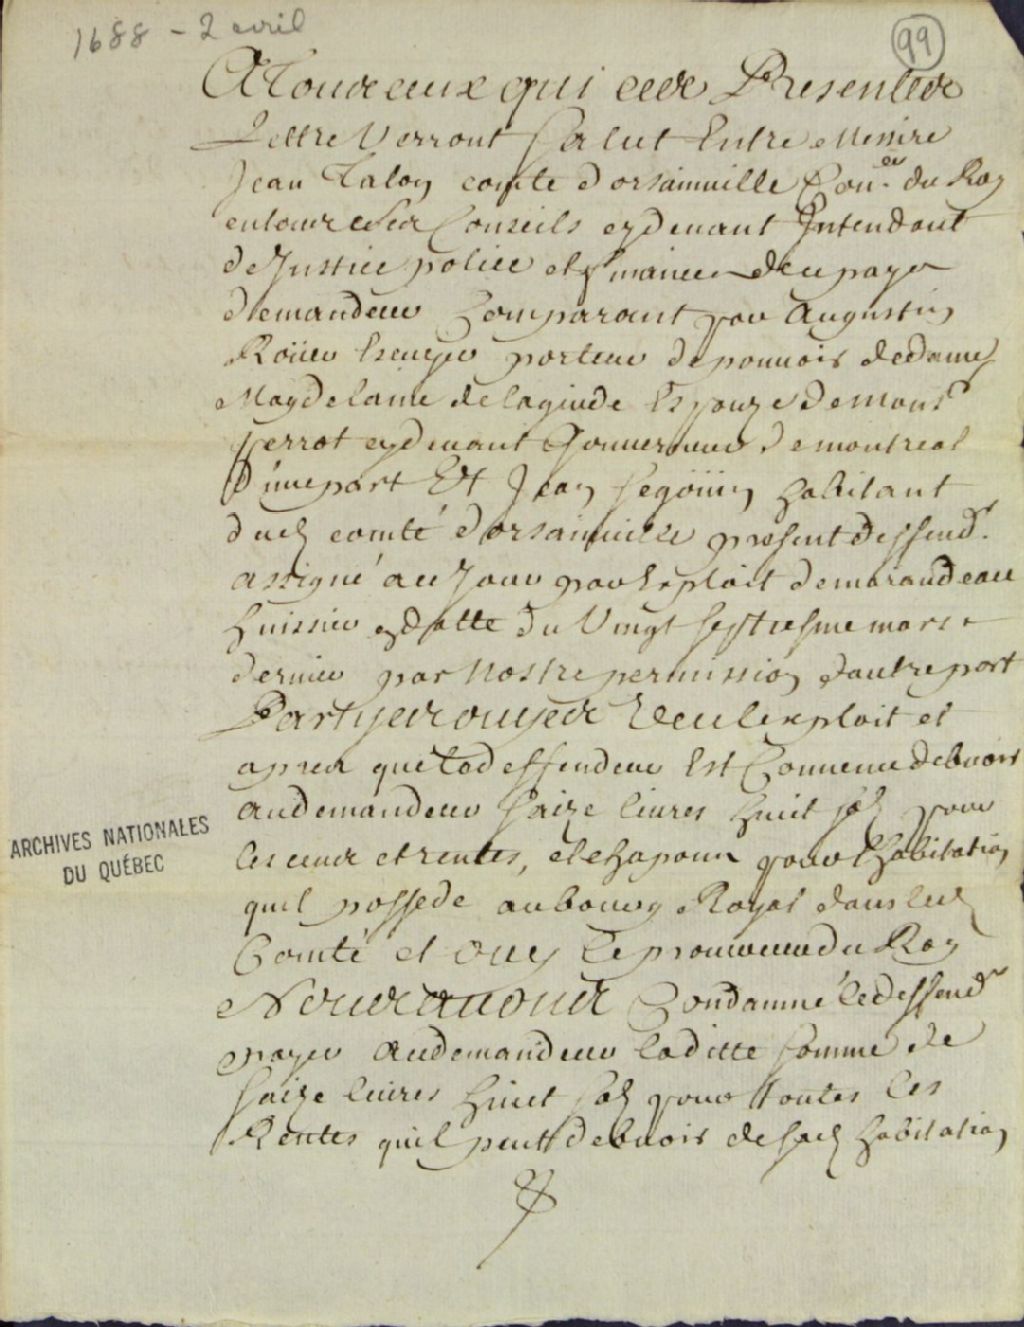 1688 - 2 avril
99
A Tous ceux qui ces Presentes
Lettre Verront Salut Entre Messire
Jean Talon comte dorsainuille Con.er du Roy
en tous ses Conseils cydeuant Intendant
de Justice police et finances de ce pays
demandeur Comparant par Augustin
Roüer Escuyer porteur de pouuoir de dame
Magdelaine de laguide Espouze de Monsr
perrot cydeuant Gouuerneur de montreal
d'une part Et Jean Segoüin habitant
dud comté dorsainuille present deffendr
assigné a ce Jour par Exploit de marandeau
huissier en datte du Vingt septiesme mars
dernier par Nostre permission dautre part
Partyes ouyes Veu lexploit et
apres que led deffendeur Est Conuenu debuoir
au demandeur Saize liures huit sol pour
les cens et rentes, et chapons pour lhabitation
quil possede au bourg Royal dans led
Comté et Ouy le procureur du Roy
Nous auons Condamné le deffendr
payer au demandeur laditte somme de
Saize liures huict sol pour toutes les
Rentes quil peutt debuoir de sad habitation
ARCHIVES NATIONALES
DU QUÉBEC